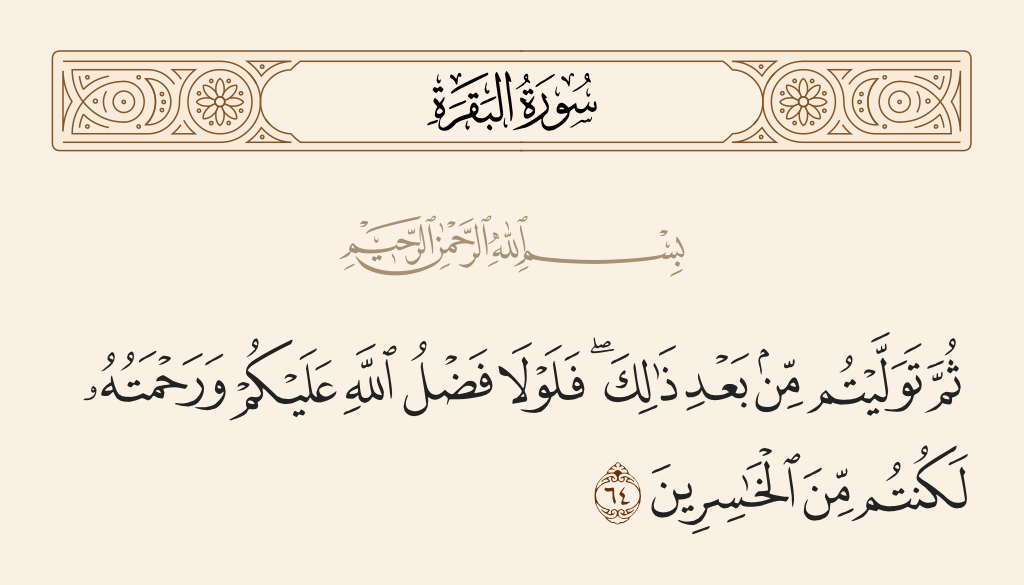 سُورَةُ البَقَرَةِ
بِسْمِ ٱللَّهِ ٱلرَّحْمَٰنِ ٱلرَّحِيمِ
ثُمَّ تَوَلَّيْتُم مِّنۢ بَعْدِ ذَٰلِكَ ۖ فَلَوْلَا فَضْلُ ٱللَّهِ عَلَيْكُمْ وَرَحْمَتُهُۥ
لَكُنتُم مِّنَ ٱلْخَٰسِرِينَ ٦٤